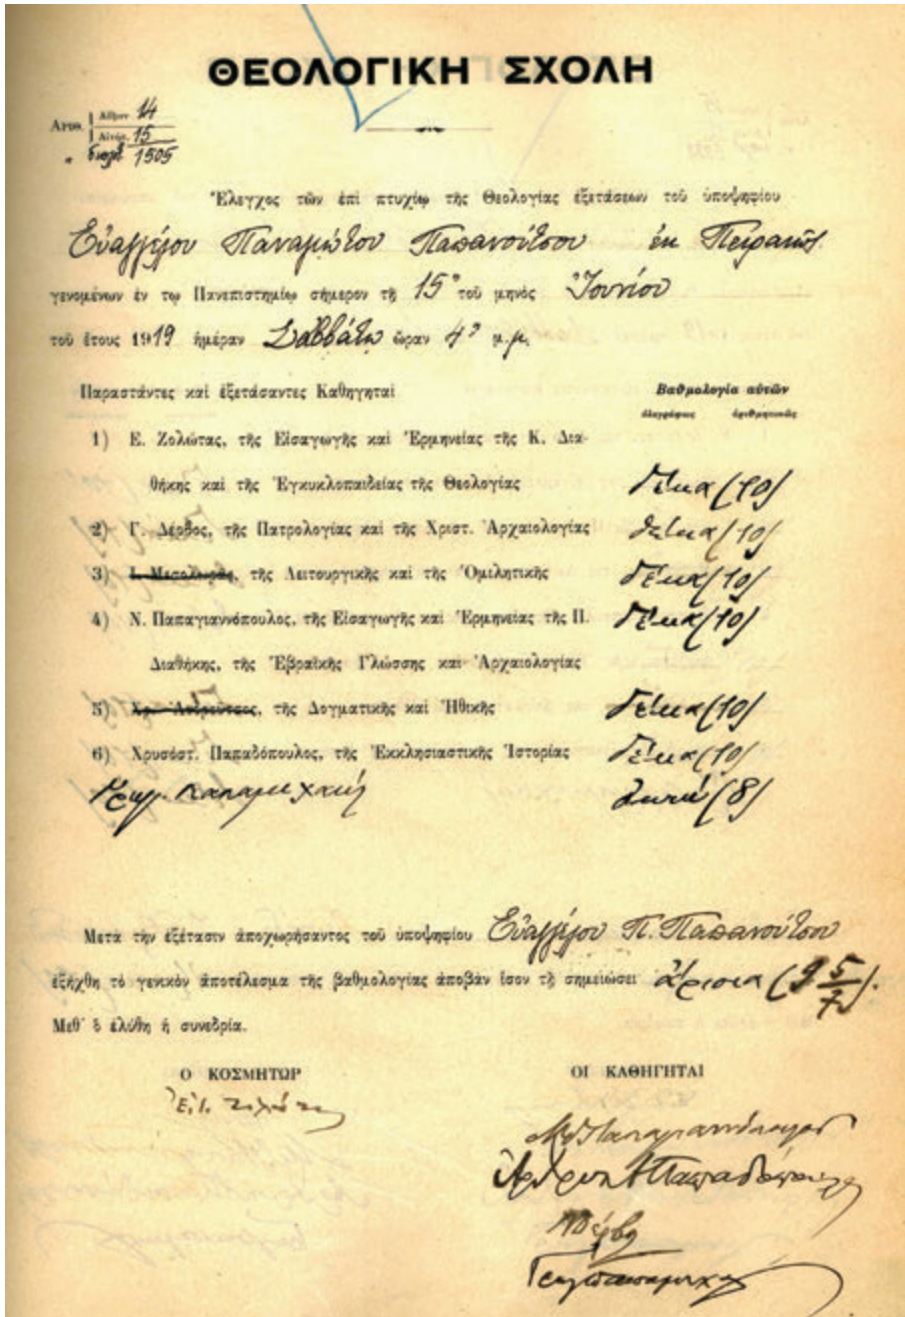 ΘΕΟΛΟΓΙΚΗ ΣΧΟΛΗ
Αριθ. Αθρον 14
Αὔξων 15
" διαγλ 1505
Ἔλεγχος τῶν ἐπὶ πτυχίῳ τῆς Θεολογίας ἐξετάσεων τοῦ ὑποψηφίου
Εὐαγγέλου Παναγιώτου Παπανούτσου ἐκ Πειραιῶς
γενομένων ἐν τῳ Πανεπιστημίῳ σήμερον τῇ 15ῃ τοῦ μηνὸς Ἰουνίου
τοῦ ἔτους 1919 ἡμέραν Σάββατον ὥραν 4ῃ μ.μ.
Παραστάντες καὶ ἐξετάσαντες Καθηγηταί
Βαθμολογία αὐτῶν
ὁλογράφως ἀριθμητικῶς
1) Ε. Ζολώτας, τῆς Εἰσαγωγῆς καὶ Ἑρμηνείας τῆς Κ. Δια-
θήκης καὶ τῆς Ἐγκυκλοπαιδείας τῆς Θεολογίας δέκα (10)
2) Γ. Δέρβος, τῆς Πατρολογίας καὶ τῆς Χριστ. Ἀρχαιολογίας δέκα (10)
3) Ι. Μεσολωρᾶς, τῆς Λειτουργικῆς καὶ τῆς Ὁμιλητικῆς δέκα (10)
4) Ν. Παπαγιαννόπουλος, τῆς Εἰσαγωγῆς καὶ Ἑρμηνείας τῆς Π. δέκα (10)
Διαθήκης, τῆς Ἑβραϊκῆς Γλώσσης καὶ Ἀρχαιολογίας
5) Χρ. Ἀνδροῦτσος, τῆς Δογματικῆς καὶ Ἠθικῆς δέκα (10)
6) Χρυσόστ. Παπαδόπουλος, τῆς Ἐκκλησιαστικῆς Ἱστορίας δέκα (10)
Γρηγ. Παπαμιχαήλ ὀκτώ (8)
Μετὰ τὴν ἐξέτασιν ἀποχωρήσαντος τοῦ ὑποψηφίου Εὐαγγέλου Π. Παπανούτσου
ἐξήχθη τὸ γενικὸν ἀποτέλεσμα τῆς βαθμολογίας ἀποβὰν ἴσον τῇ σημειώσει ἄριστα (9 5/7).
Μεθ' ὃ ἐλύθη ἡ συνεδρία.
Ο ΚΟΣΜΗΤΩΡ
ΟΙ ΚΑΘΗΓΗΤΑΙ
Ε. Ι. Ζολώτας
Ν. Παπαγιαννόπουλος
Ἀρχιμ. Χρυσ. Α Παπαδόπουλος
Δέρβος
Γρηγ. Παπαμιχαήλ